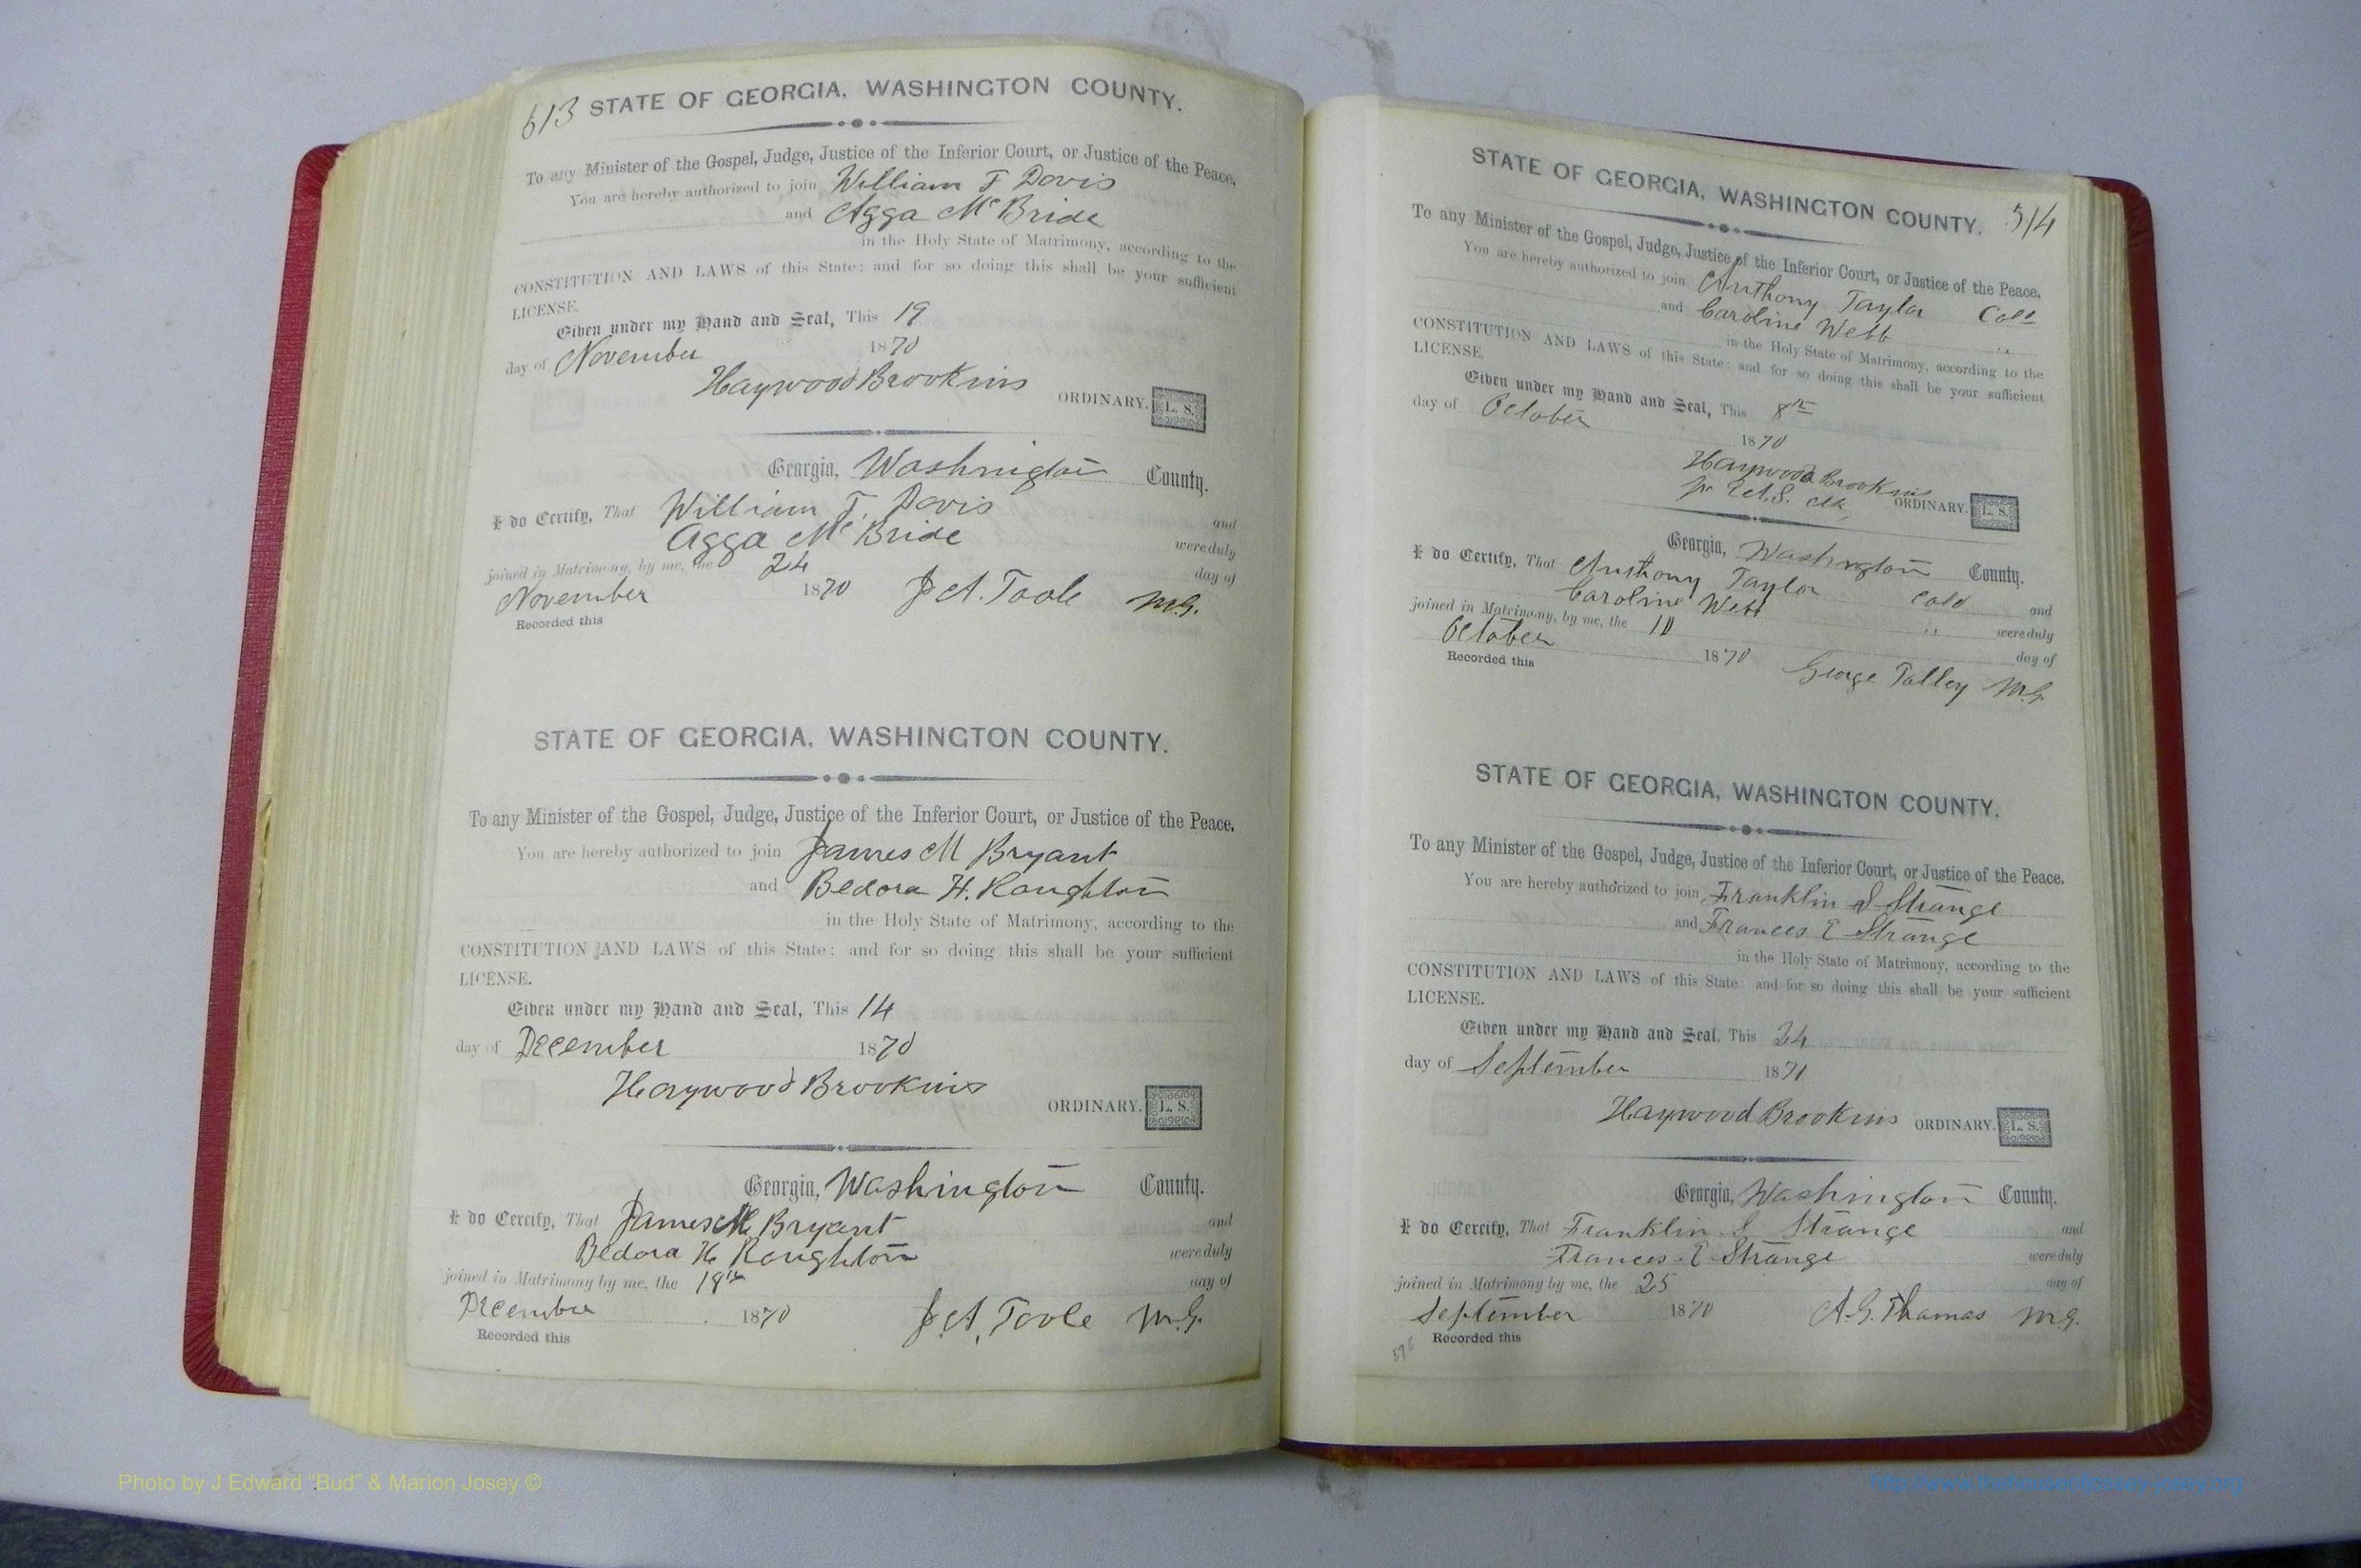 513 STATE OF GEORGIA, WASHINGTON COUNTY.
To any Minister of the Gospel, Judge, Justice of the Inferior Court, or Justice of the Peace,
You are hereby authorized to join William F Davis
and Agga McBride
in the Holy State of Matrimony, according to the
CONSTITUTION AND LAWS of this State; and for so doing this shall be your sufficient
LICENSE.
Given under my Hand and Seal, This 19
day of November 1870
Haywood Brookins
ORDINARY. L. S.
Georgia, Washington County.
I do Certify, That William F. Davis and
Agga McBride were duly
joined in Matrimony, by me, the 24 day of
November 1870 J. A. Toole M.G.
Recorded this
STATE OF GEORGIA, WASHINGTON COUNTY.
To any Minister of the Gospel, Judge, Justice of the Inferior Court, or Justice of the Peace.
You are hereby authorized to join James M Bryant
and Bedora H. Roughton
in the Holy State of Matrimony, according to the
CONSTITUTION AND LAWS of this State; and for so doing this shall be your sufficient
LICENSE.
Given under my Hand and Seal, This 14
day of December 1870
Haywood Brookins
ORDINARY. L. S.
Georgia, Washington County.
I do Cercify, That James M. Bryant and
Bedora H Roughton were duly
joined in Matrimony by me, the 18th day of
December 1870 J. A. Toole M.G.
Recorded this
STATE OF GEORGIA, WASHINGTON COUNTY. 514
To any Minister of the Gospel, Judge, Justice of the Inferior Court, or Justice of the Peace.
You are hereby authorized to join Anthony Taylor Cold
and Caroline Webb "
in the Holy State of Matrimony, according to the
CONSTITUTION AND LAWS of this State; and for so doing this shall be your sufficient
LICENSE.
Given under my Hand and Seal, This 8th
day of October
1870
Haywood Brookins
ORDINARY. L. S.
Georgia, Washington County.
I do Certify, That Anthony Taylor Cold and
Caroline Webb " were duly
joined in Matrimony, by me, the 10 day of
October 1870 George Talley M.G.
Recorded this
STATE OF GEORGIA, WASHINGTON COUNTY.
To any Minister of the Gospel, Judge, Justice of the Inferior Court, or Justice of the Peace.
You are hereby authorized to join Franklin S Strange
and Frances E Strange
in the Holy State of Matrimony, according to the
CONSTITUTION AND LAWS of this State; and for so doing this shall be your sufficient
LICENSE.
Given under my Hand and Seal, This 24
day of September 1871
Haywood Brookins ORDINARY. L. S.
Georgia, Washington County.
I do Cercify, That Franklin S Strange and
Frances E Strange were duly
joined in Matrimony by me, the 25 day of
September 1870 A. G. Thomas M.G.
Recorded this
Photo by J Edward "Bud" & Marion Josey ©